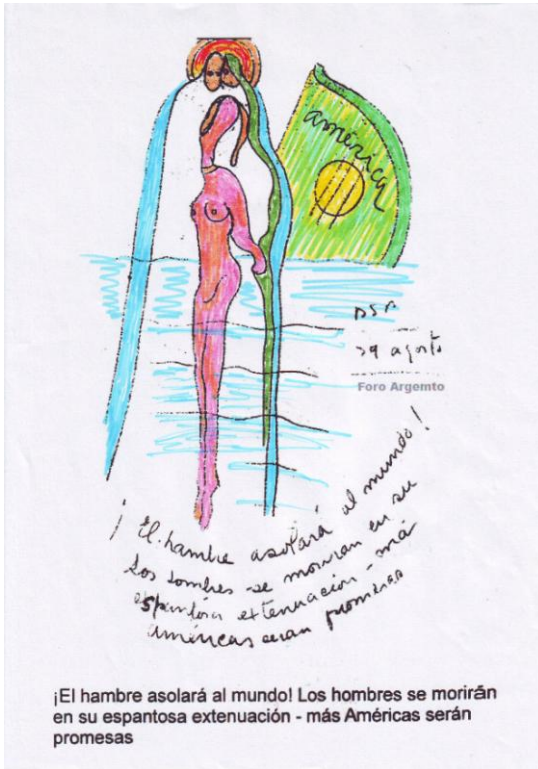 américa
BSP
29 agosto
Foro Argemto
¡El hambre asolará al mundo!
Los hombres se morirán en su
espantosa extenuación - má
américas serán promesas
¡El hambre asolará al mundo! Los hombres se morirán
en su espantosa extenuación - más Américas serán
promesas